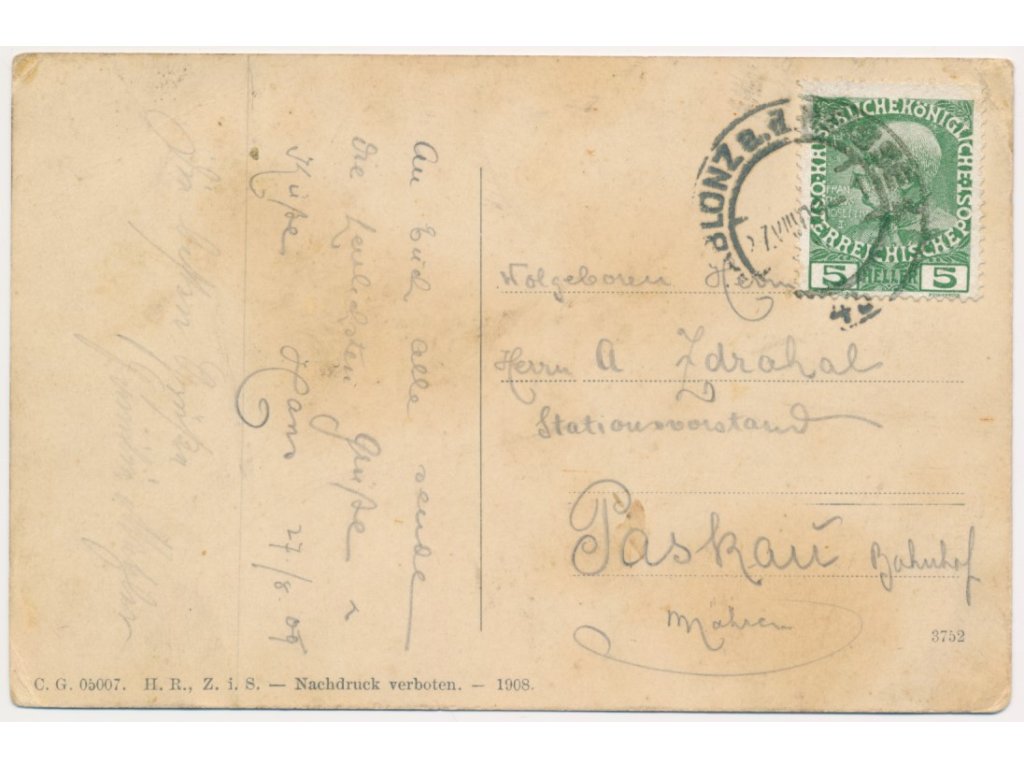 An Euch alle sende
die herlichsten Grüße u
Küße Hans 27/8 09
GABLONZ a. d.
27.VIII.0
KAISERLICHE KÖNIGLICHE
ÖSTERREICHISCHE POST
5 HELLER 5
Wolgeboren Herrn
Herrn A Zdrahal
Stationsvorstand
Paskau Bahnhof
Mähren
3752
C. G. 05007. H. R., Z. i. S. — Nachdruck verboten. — 1908.